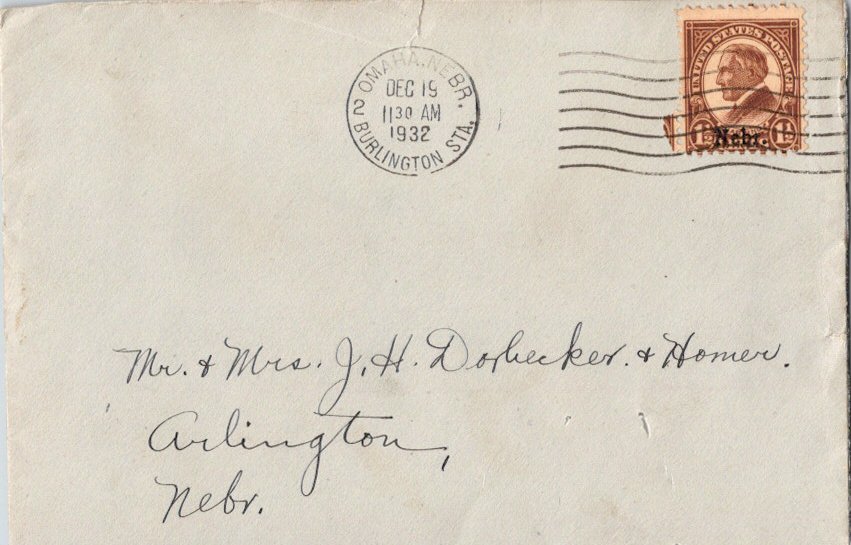 OMAHA, NEBR.
DEC 19
11 30 AM
1932
2 BURLINGTON STA.
UNITED STATES POSTAGE
1½ Nebr. 1½
Mr. & Mrs. J. H. Dorbecker. & Homer.
Arlington,
Nebr.